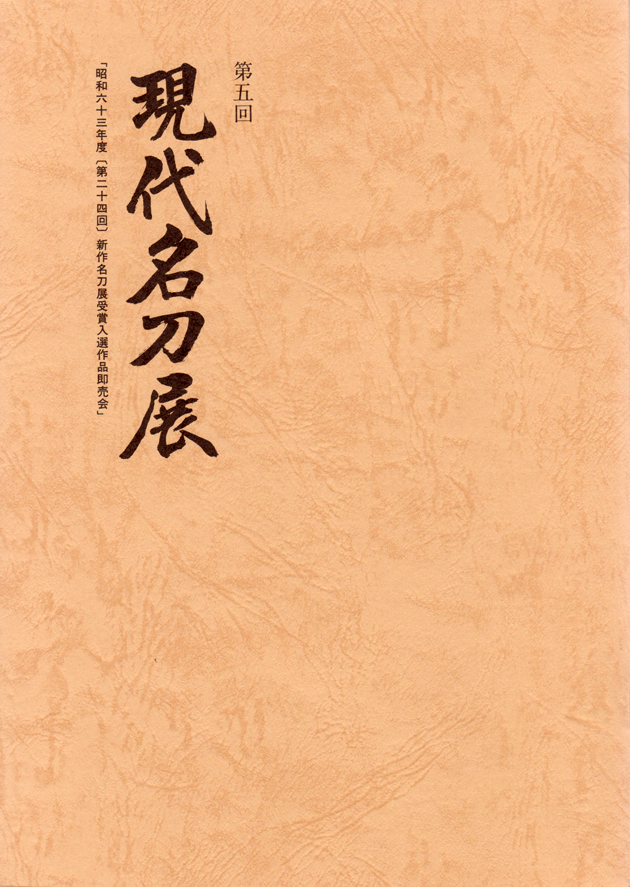 第五回
現代名刀展
「昭和六十三年度〔第二十四回〕新作名刀展受賞入選作品即売会」